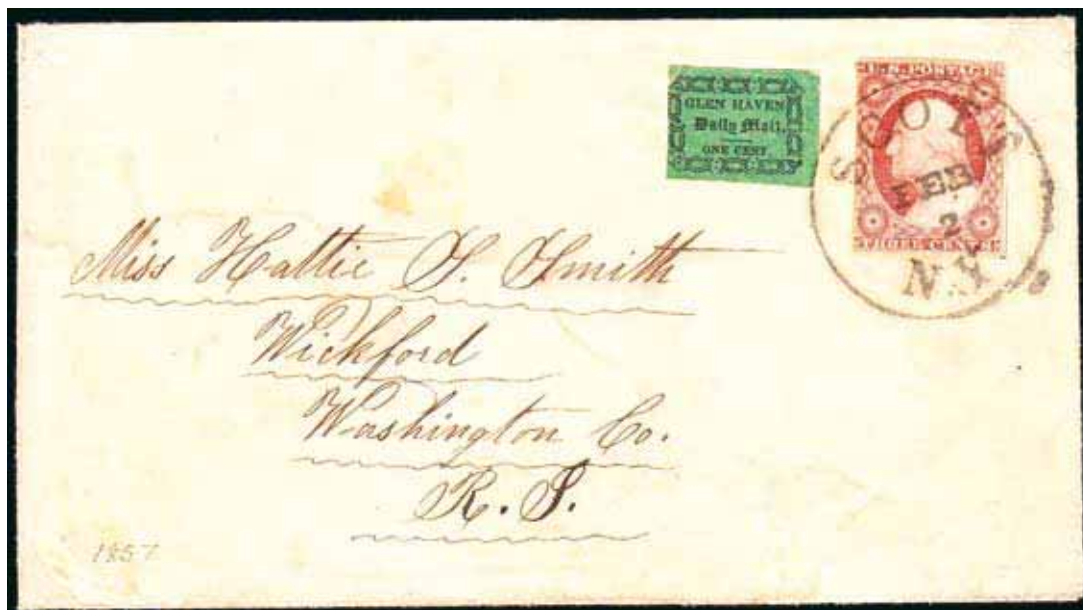 GLEN HAVEN
Daily Mail.
ONE CENT
U.S. POSTAGE
THREE CENTS
FEB
2
N.Y
Miss Hattie S. Smith
Wickford
Washington Co.
R. I.
1857